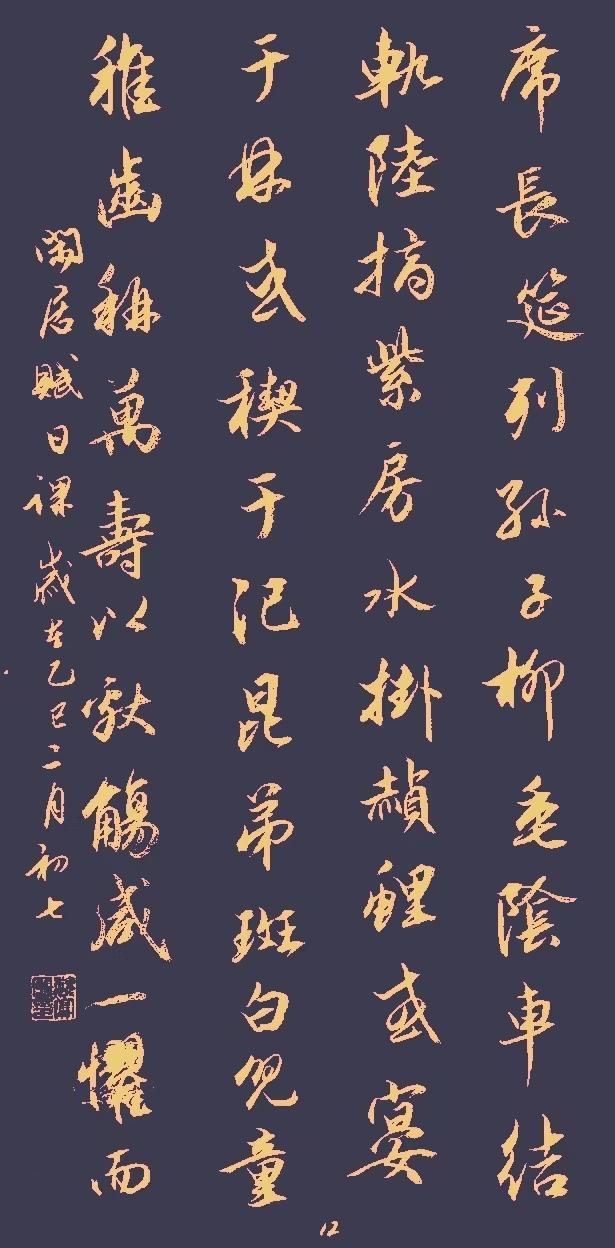 席長筵列孫子柳垂陰車結
軌陸摘紫房水掛赬鯉或宴
于林或禊于汜昆弟班白兒童
稚齒稱萬壽以獻觴咸一懼而
閒居賦日課歲在乙巳二月初七
12